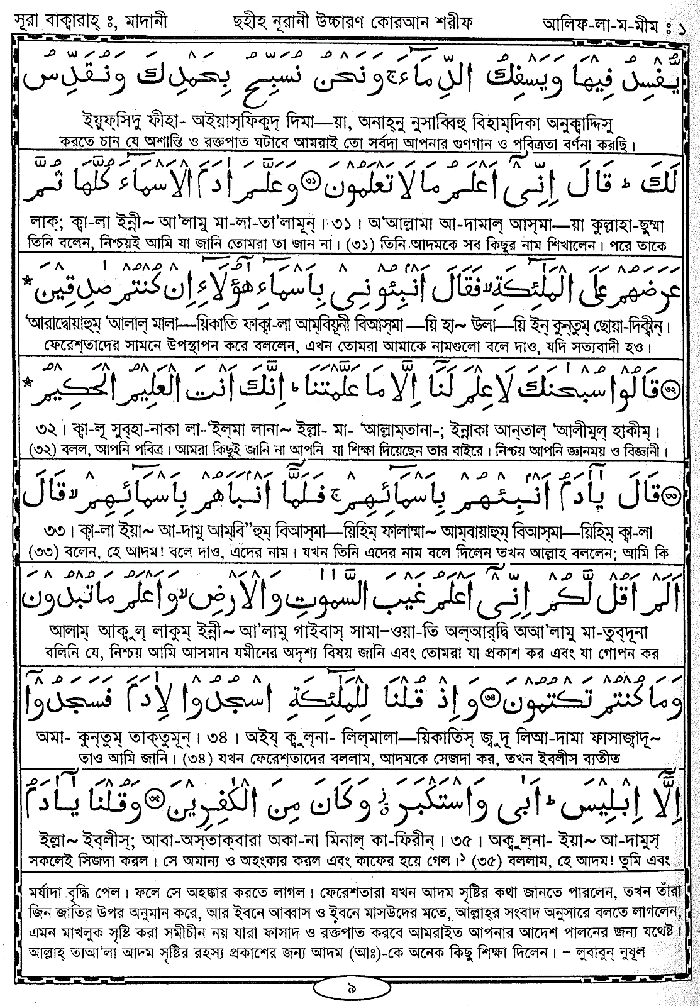 সূরা বাক্বারাহ্ ঃ, মাদানী ছহীহ নূরানী উচ্চারণ কোরআন শরীফ আলিফ-লা-ম-মীম ঃ ১
يُّفْسِدُ فِيْهَا وَيَسْفِكُ الدِّمَآءَ ۚ وَنَحْنُ نُسَبِّحُ بِحَمْدِكَ وَنُقَدِّسُ
ইয়ুফ্সিদু ফীহা- অইয়াস্ফিকুদ্ দিমা—য়া, অনাহ্নু নুসাব্বিহু বিহাম্দিকা অনুক্বাদ্দিসু
করতে চান যে অশান্তি ও রক্তপাত ঘটাবে আমরাই তো সর্বদা আপনার গুণগান ও পবিত্রতা বর্ণনা করছি।
لَكَ ؕ قَالَ اِنِّىْۤ اَعْلَمُ مَا لَا تَعْلَمُوْنَ ﴿۳۰﴾ وَعَلَّمَ اٰدَمَ الْاَسْمَآءَ كُلَّهَا ثُمَّ
লাক্; ক্বা-লা ইন্নী~ আ'লামু মা-লা-তা'লামূন্। ৩১। অ'আল্লামা আ-দামাল্ আস্মা—য়া কুল্লাহা-ছুম্মা
তিনি বলেন, নিশ্চয়ই আমি যা জানি তোমরা তা জান না। (৩১) তিনি আদমকে সব কিছুর নাম শিখালেন। পরে তাকে
عَرَضَهُمْ عَلَى الْمَلٰٓئِكَةِ ۙ فَقَالَ اَنْۢبِئُوْنِىْ بِاَسْمَآءِ هٰۤؤُلَآءِ اِنْ كُنْتُمْ صٰدِقِيْنَ *
'আরাদ্বোয়াহুম্ 'আলাল্ মালা—য়িকাতি ফাক্বা-লা আম্বিয়ূনী বিআস্মা—য়ি হা~ উলা—য়ি ইন্ কুন্তুম্ ছোয়া-দিক্বীন্।
ফেরেশ্তাদের সামনে উপস্থাপন করে বললেন, এখন তোমরা আমাকে নামগুলো বলে দাও, যদি সত্যবাদী হও।
﴿۳۲﴾ قَالُوْا سُبْحٰنَكَ لَا عِلْمَ لَنَآ اِلَّا مَا عَلَّمْتَنَا ؕ اِنَّكَ اَنْتَ الْعَلِيْمُ الْحَكِيْمُ *
৩২। ক্বা-লূ সুব্হা-নাকা লা-'ইল্মা লানা~ ইল্লা- মা- 'আল্লাম্তানা-; ইন্নাকা আন্তাল্ 'আলীমুল্ হাকীম্।
(৩২) বলল, আপনি পবিত্র। আমরা কিছুই জানি না আপনি যা শিক্ষা দিয়েছেন তার বাইরে। নিশ্চয় আপনি জ্ঞানময় ও বিজ্ঞানী।
﴿۳۳﴾ قَالَ يٰۤاٰدَمُ اَنْۢبِئْهُمْ بِاَسْمَآئِهِمْ ۚ فَلَمَّآ اَنْۢبَاَهُمْ بِاَسْمَآئِهِمْ ۙ قَالَ
৩৩। ক্বা-লা ইয়া~ আ-দামু আম্বি'হুম্ বিআস্মা—য়িহিম্ ফালাম্মা~ আম্বায়াহুম্ বিআস্মা—য়িহিম্ ক্বা-লা
(৩৩) বলেন, হে আদম! বলে দাও, এদের নাম। যখন তিনি এদের নাম বলে দিলেন তখন আল্লাহ বললেন; আমি কি
اَلَمْ اَقُلْ لَّكُمْ اِنِّىْۤ اَعْلَمُ غَيْبَ السَّمٰوٰتِ وَالْاَرْضِ ۙ وَاَعْلَمُ مَا تُبْدُوْنَ
আলাম্ আক্বুল্ লাকুম্ ইন্নী~ আ'লামু গাইবাস্ সামা-ওয়া-তি অল্আর্দ্বি অআ'লামু মা-তুব্দূনা
বলিনি যে, নিশ্চয় আমি আসমান যমীনের অদৃশ্য বিষয় জানি এবং তোমরা যা প্রকাশ কর এবং যা গোপন কর
وَمَا كُنْتُمْ تَكْتُمُوْنَ ﴿۳۳﴾ وَاِذْ قُلْنَا لِلْمَلٰٓئِكَةِ اسْجُدُوْا لِاٰدَمَ فَسَجَدُوْٓا
অমা- কুন্তুম্ তাক্তুমূন্। ৩৪। অইয্ ক্বুল্না- লিল্মালা—য়িকাতিস্ জুদূ লিআ-দামা ফাসাজ্বাদূ~
তাও আমি জানি। (৩৪) যখন ফেরেশ্তাদের বললাম, আদমকে সেজদা কর, তখন ইবলীস ব্যতীত
اِلَّآ اِبْلِيْسَ ؕ اَبٰى وَاسْتَكْبَرَ وَكَانَ مِنَ الْكٰفِرِيْنَ ﴿۳۴﴾ وَقُلْنَا يٰۤاٰدَمُ
ইল্লা~ ইব্লীস্; আবা-অস্তাক্বারা অকা-না মিনাল্ কা-ফিরীন্। ৩৫। অক্বুল্না- ইয়া~ আ-দামুস্
সকলেই সিজদা করল। সে অমান্য ও অহংকার করল এবং কাফের হয়ে গেল।১ (৩৫) বললাম, হে আদম! তুমি এবং
মর্যাদা বৃদ্ধি পেল। ফলে সে অহঙ্কার করতে লাগল। ফেরেশতারা যখন আদম সৃষ্টির কথা জানতে পারলেন, তখন তাঁরা
জিন জাতির উপর অনুমান করে, আর ইবনে আব্বাস ও ইবনে মাসউদের মতে, আল্লাহর সংবাদ অনুসারে বলতে লাগলেন,
এমন মাখলুক সৃষ্টি করা সমীচীন নয় যারা ফাসাদ ও রক্তপাত করবে আমরাইত আপনার আদেশ পালনের জন্য যথেষ্ট।
আল্লাহ্ তাআ'লা আদম সৃষ্টির রহস্য প্রকাশের জন্য আদম (আঃ)-কে অনেক কিছু শিক্ষা দিলেন। – লুবাবুন্ নুযূল
৯